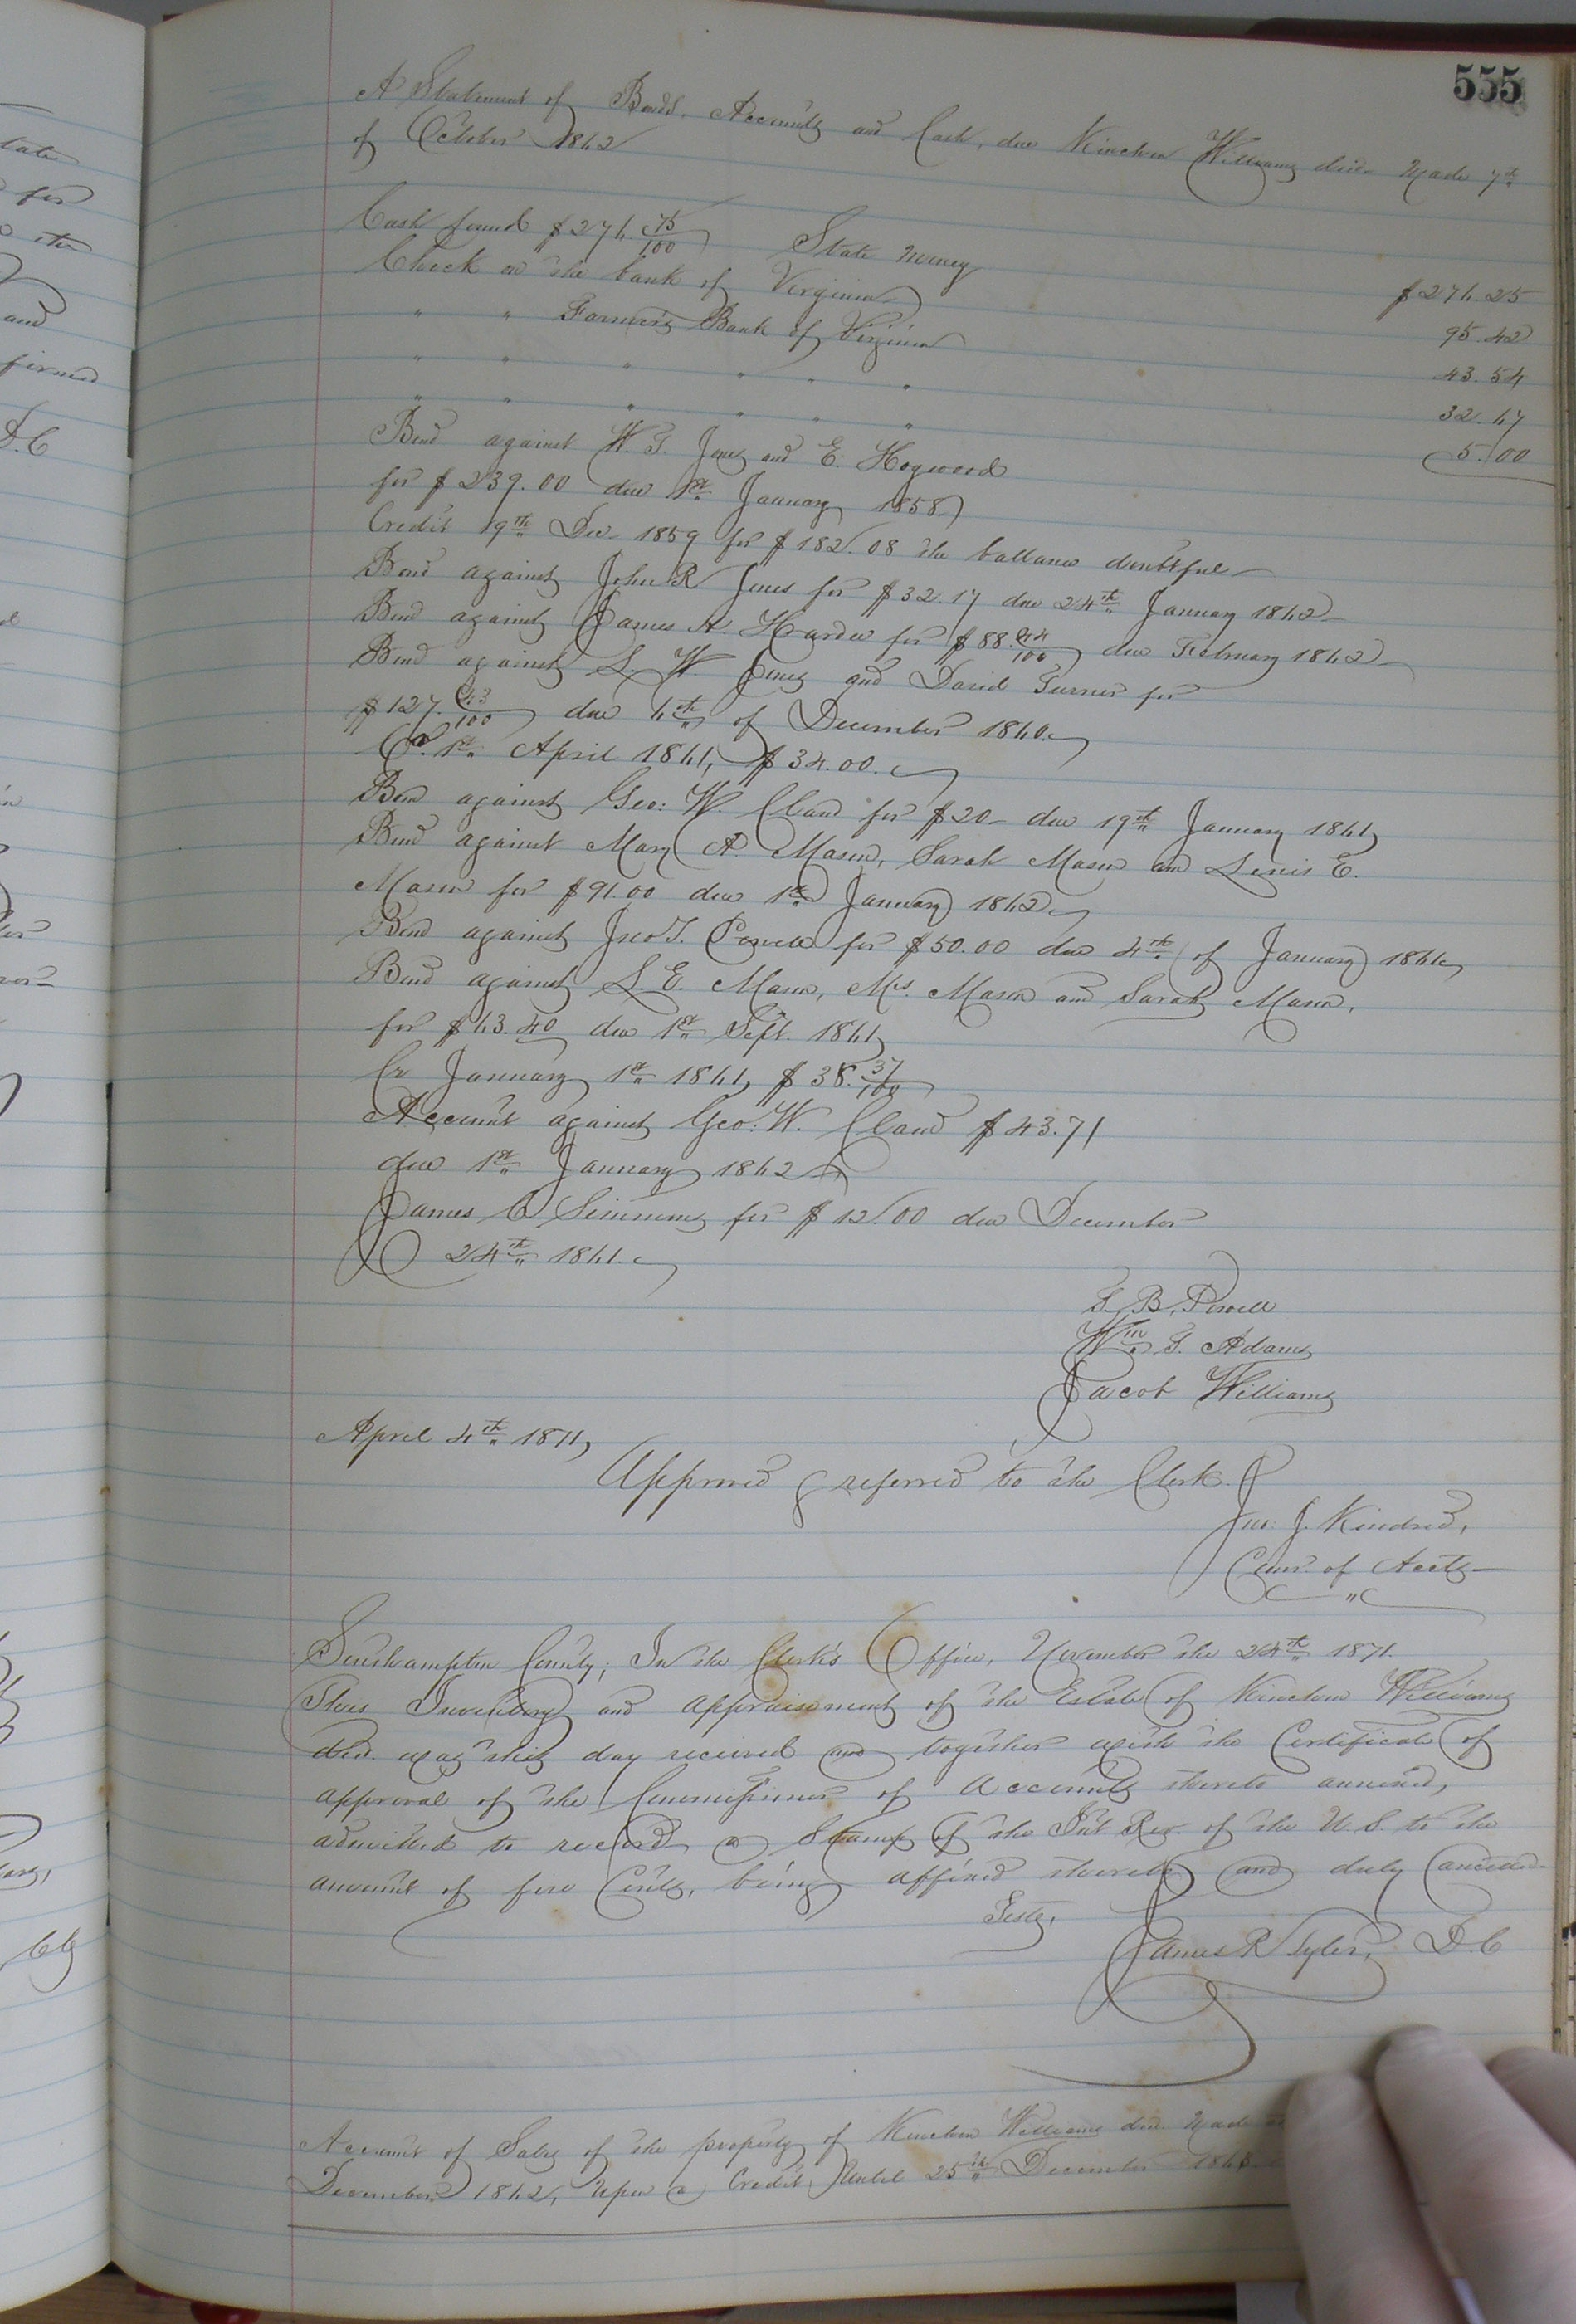 for
and
D.C
555
A Statement of Bonds, Accounts and Cash, due Kinchen Williams decd. Made 7th
of October 1862
Cash found $276 75/100 State money $276.25
Check on the bank of Virginia 95.42
" " Farmers Bank of Virginia 43.54
" " " " " " 32.67
" " " " " " 5.00
Bond against W. T. Jones and E. Hogwood
for $239.00 due 1st January 1858
Credit 19th Dec 1859 for $182.08 the ballance doubtful
Bond against John R Jones for $32.17 due 24th January 1862
Bond against James A. Harder for $88.44/100 due February 1862
Bond against S. W. Jones and David Turner for
$127.43/100 due 6th of December 1860
Cr. 1st April 1861, $34.00.
Bond against Geo: W. Claud for $20 due 19th January 1861
Bond against Mary A. Mason, Sarah Mason and Lewis E.
Mason for $91.00 due 1st January 1862
Bond against Jno T. Powell for $50.00 due 4th of January 1861
Bond against L. E. Mason, Mrs. Mason and Sarah Mason,
for $63.40 due 1st Sept. 1861
Cr January 1st 1861, $38.37/100
Account against Geo. W. Claud $43.71
due 1st January 1862
James C Simmons for $12.00 due December
24th 1861.
T. B. Powell
Wm T. Adams
Jacob Williams
April 4th 1871,
Approved & referred to the Clerk.
Jno. J. Kindred,
Comr. of Accts
Southampton County; In the Clerk's Office, November the 24th 1871.
This Inventory and appraisement of the Estate of Kinchen Williams
decd. was this day received and together with the Certificate of
approval of the Commissioner of Accounts thereto annexed,
admitted to record a Stamp of the Int. Rev. of the U S to the
amount of five Cents, being affixed thereto and duly Canceled
Teste,
James R Tyler, D.C
Account of Sales of the property of Kinchen Williams decd. Made
December 1862, Upon a Credit Until 25th December 1863